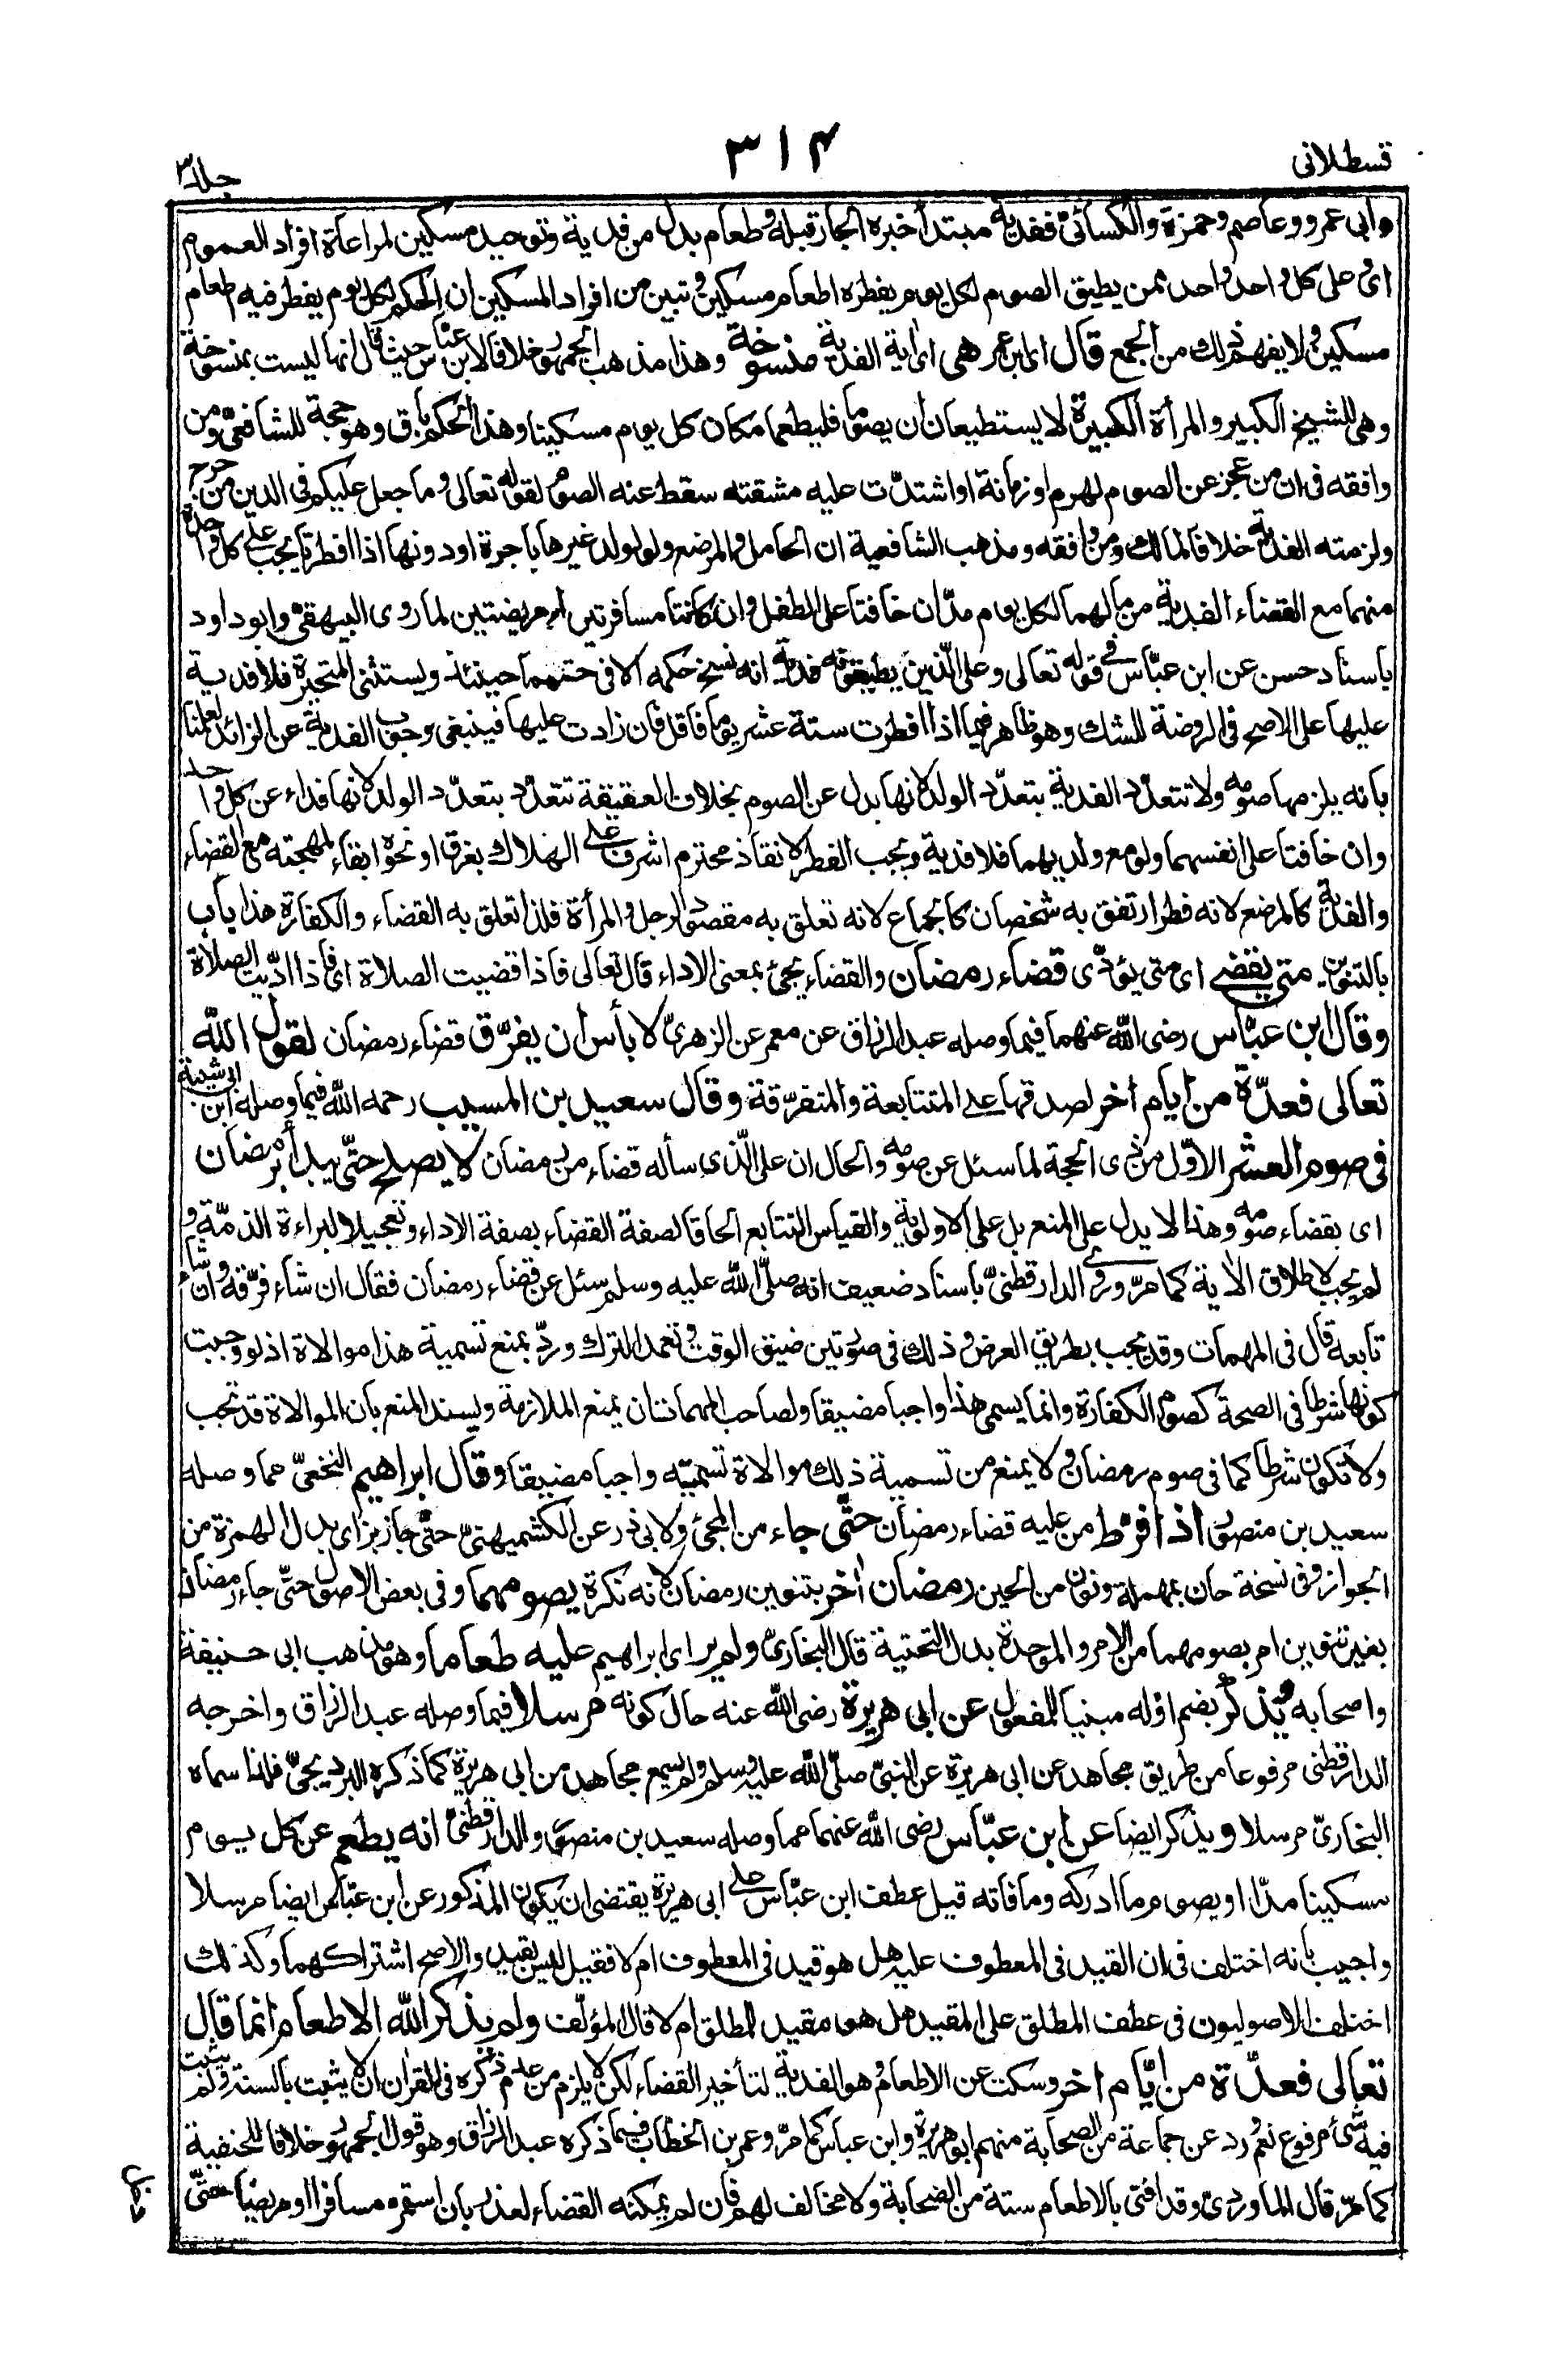 قسطلانى
٣١٤
جلد ٣
وابى عمرو وعاصم وحمزة والكسائىّ ففدية مبتدأ خبره الجار قبله وطعام بدل من فدية وتوحيد مسكين لمراعاة افراد العموم
اى وعلى كل واحد واحد ممن يطيق الصوم لكل يوم يفطره اطعام مسكين وتبين من افراد المسكين ان الحكم لكل يوم يفطر فيه اطعام
مسكين ولا يفهم ذلك من الجمع قال اى ابن عمر هى اى اية الفدية منسوخة وهذا مذهب الجمهور خلافا لابن عبّاس حيث قال انها ليست بمنسوخة
وهى للشيخ الكبير والمرأة الكبيرة لا يستطيعان أن يصوما فليطعما مكان كل يوم مسكينا وهذا الحكم باق وهو حجة للشافعىّ ومن
وافقه فى ان من عجز عن الصوم لهرم او زمانة او اشتدّت عليه مشقته سقط عنه الصوم لقوله تعالى وما جعل عليكم فى الدين من حرج
ولزمته الفدية خلافا لمالك ومن وافقه ومذهب الشافعية ان الحامل والمرضع ولو لولد غيرها باجرة او دونها اذا افطرتا يجب على كل واحدة
منهما مع القضاء الفدية من مالهما لكل يوم مدّ ان خافتا على الطفل وان كانتا مسافرتين او مريضتين لما روى البيهقىّ وابو داود
باسناد حسن عن ابن عبّاس فى قوله تعالى وعلى الّذين يطيقونه فدية انه نسخ حكمه الا فى حقهما حينئذ ويستثنى المتحيرة فلا فدية
عليها على الاصح فى الروضة للشك وهو ظاهر فيما اذا افطرت ستة عشر يوما فاقل فان زادت عليها فينبغى وجوب الفدية عن الزائد لعلمنا
بانه يلزمها صومه ولا تتعدّد الفدية بتعدّد الولد لانها بدل عن الصوم بخلاف العقيقة تتعدّد بتعدّد الولد لانها فداء عن كل واحد
وان خافتا على انفسهما ولو مع ولديهما فلا فدية ويجب الفطر لانقاذ محترم اشرف على الهلاك بغرق او نحوه ابقاء لمهجته مع القضاء
والفدية كالمرضع لانه فطر ارتفق به شخصان كالجماع لانه تعلق به مقصود الرجل والمرأة فلذا تعلق به القضاء والكفارة هذا باب
بالتنوين متى يقضى اى متى يؤدّى قضاء رمضان والقضاء يجئ بمعنى الاداء قال تعالى فاذا قضيت الصلاة اى فاذا ادّيت الصلاة
وقال ابن عبّاس رضى اللّٰه عنهما فيما وصله عبد الرزاق عن معمر عن الزهرىّ لا بأس أن يفرّق قضاء رمضان لقول اللّٰه
تعالى فعدّة من أيام أخر لصدقها على المتتابعة والمتفرّقة وقال سعيد بن المسيب رحمه اللّٰه فيما وصله ابن ابى شيبة
فى صوم العشر الاوّل من ذى الحجة لما سئل عن صومه والحال ان على الّذى سأله قضاء من رمضان لا يصلح حتّى يبدأ برمضان
اى بقضاء صومه وهذا لا يدل على المنع بل على الاولوية والقياس التتابع الحاقا لصفة القضاء بصفة الاداء وتعجيلا لبراءة الذمّة و
لم يجب لاطلاق الاية كما مرّ وروى الدارقطنىّ باسناد ضعيف انه صلّى اللّٰه عليه وسلم سئل عن قضاء رمضان فقال ان شاء فرّقه وان شاء
تابعه قال فى المهمات وقد يجب بطريق العرض وذلك فى صورتين ضيق الوقت وتعمد الترك وردّ بمنع تسمية هذا موالاة اذ لو وجبت
كونها شرطا فى الصحة كصوم الكفارة وانما يسمى هذا واجبا مضيقا ولصاحب المهمات ان يمنع الملازمة ويسند المنع بان الموالاة قد تجب
ولا تكون شرطا كما فى صوم رمضان ولا يمنع من تسمية ذلك موالاة تسميته واجبا مضيقا وقال ابراهيم النخعىّ مما وصله
سعيد بن منصور اذا فرّط من عليه قضاء رمضان حتّى جاء من المجئ ولابى ذر عن الكشميهنىّ حتّى جاز بزاى بدل الهمزة من
الجواز وفى نسخة حان بمهملة ونون من الحين رمضان اٰخر بتنوين رمضان لانه نكرة يصومهما وفى بعض الاصول حتّى جاء رمضان
بغير تنوين امر بصومهما من الامر والموحدة بدل التحتية قال البخارىّ ولم ير اى ابراهيم عليه طعاما وهو مذهب ابى حنيفة
واصحابه ويذكر بضم اوّله مبنيا للمفعول عن ابى هريرة رضى اللّٰه عنه حال كونه مرسلا فيما وصله عبد الرزاق واخرجه
الدارقطنى مرفوعا من طريق مجاهد عن ابى هريرة عن النبىّ صلّى اللّٰه عليه وسلم ولم يسمع مجاهد من ابى هريرة كما ذكره البرديجىّ فلذا سماه
البخارىّ مرسلا ويذكر ايضا عن ابن عبّاس رضى اللّٰه عنهما مما وصله سعيد بن منصور والدارقطنىّ انه يطعم عن كل يوم
مسكينا مدّا او يصوم ما ادركه وما فاته قيل عطف ابن عبّاس على ابى هريرة يقتضى ان يكون المذكور عن ابن عبّاس ايضا مرسلا
واجيب بانه اختلف فى ان القيد فى المعطوف عليه هل هو قيد فى المعطوف ام لا فقيل ليس بقيد والاصح اشتراكهما وكذلك
اختلف الاصوليون فى عطف المطلق على المقيد هل هو مقيد للمطلق ام لا قال المؤلّف ولم يذكر اللّٰه الاطعام انما قال
تعالى فعدّة من ايّام اخر وسكت عن الاطعام وهو الفدية لتأخير القضاء لكن لا يلزم من عدم ذكره فى القران ان لا يثبت بالسنة ولم يثبت
فيه شئ مرفوع نعم ورد عن جماعة من الصحابة منهم ابو هريرة وابن عباس كما مرّ وعمر بن الخطاب فيما ذكره عبد الرزاق وهو قول الجمهور خلافا للحنفية
كما مرّ قال الماوردىّ وقد افتى بالاطعام ستة من الصحابة ولا مخالف لهم فان لم يمكنه القضاء لعذر بان استمر مسافرا او مريضا حتّى